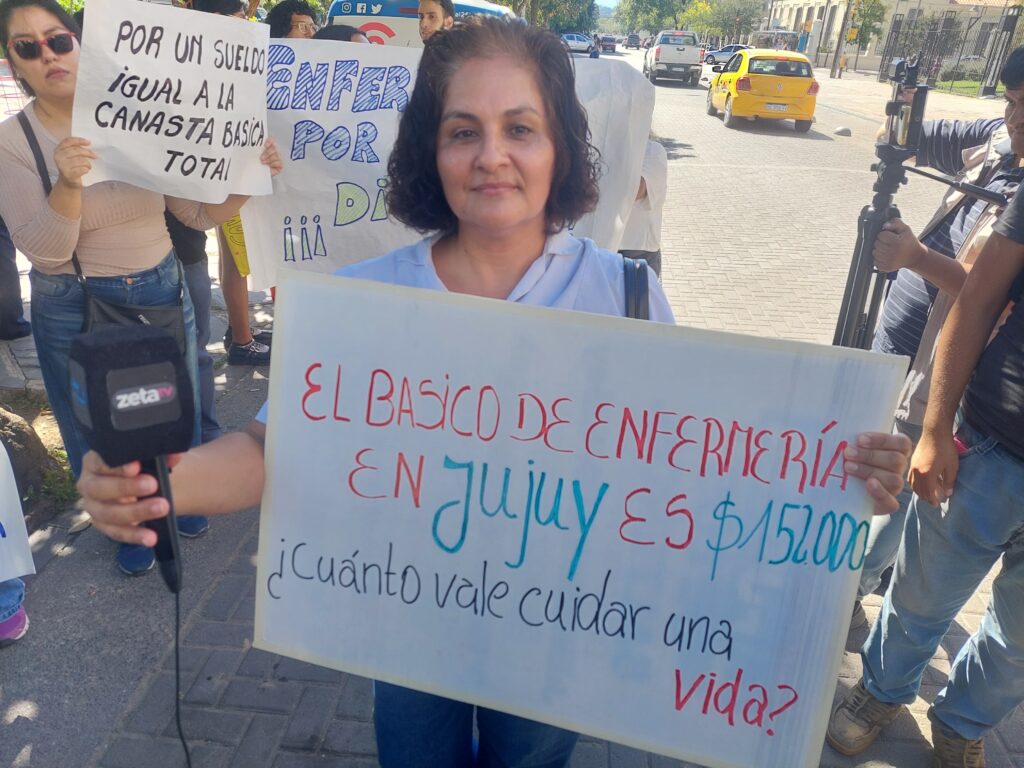 POR UN SUELDO
IGUAL A LA
CANASTA BASICA
TOTAL
ENFER
POR
DI
¡¡¡
zeta TV
EL BASICO DE ENFERMERÍA
EN Jujuy ES $152.000
¿Cuánto vale cuidar una
vida?